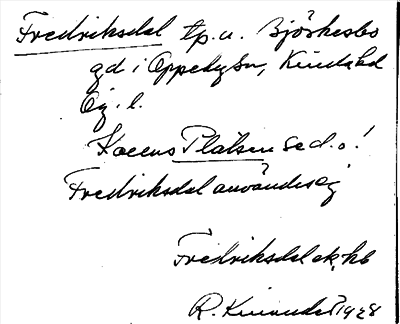 Fredriksdal tp. u. Björkesbo
gd i Oppeby sn, Kinds hd
Ög. l.
Kallas Platsen se d. o.!
Fredriksdal användes ej
Fredriksdal ek. kb
R. 1928